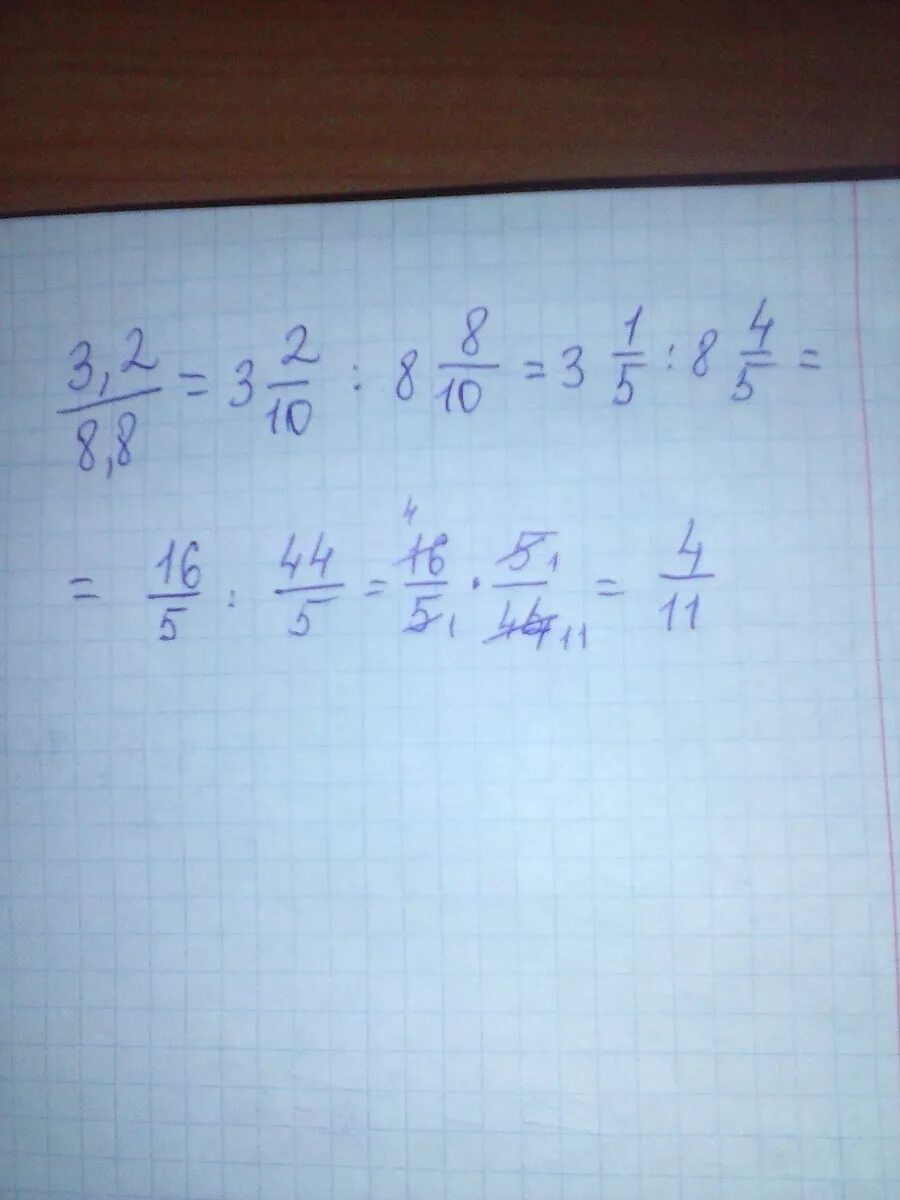 3,2/8,8 = 3 2/10 : 8 8/10 = 3 1/5 : 8 4/5 =
= 16/5 : 44/5 = 16 4/5 1 · 5 1/44 11 = 4/11